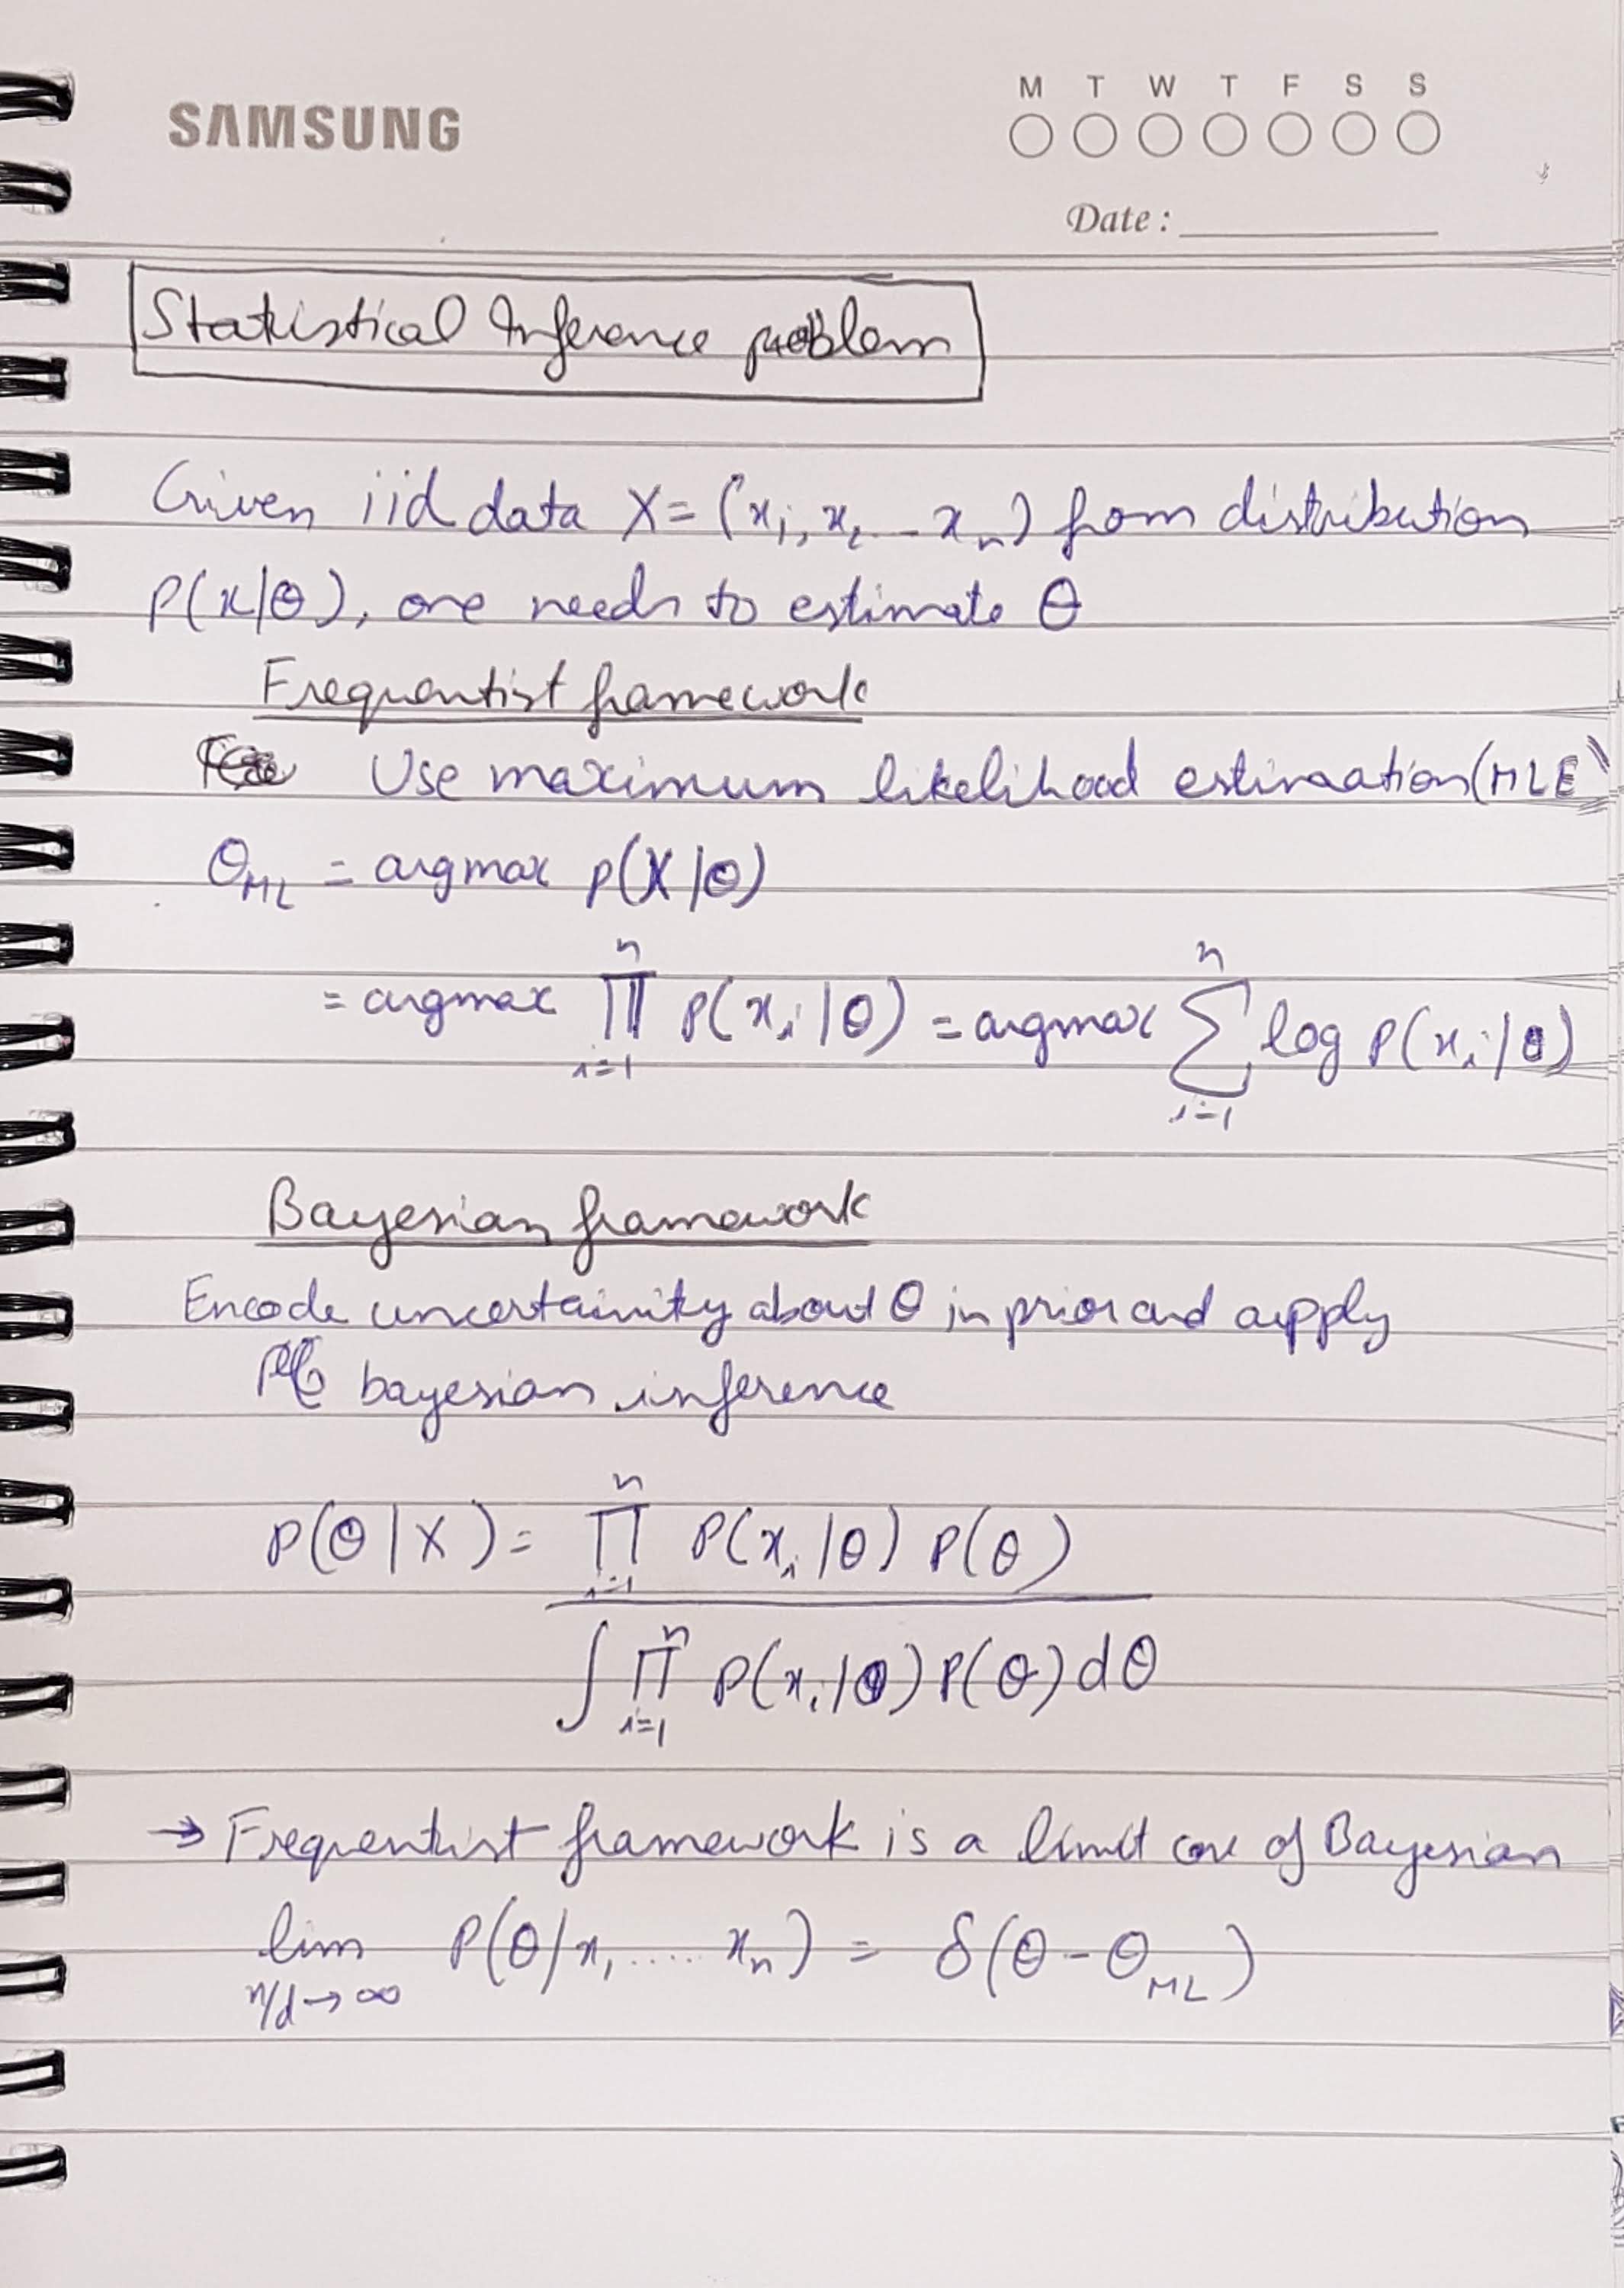 SAMSUNG
M T W T F S S
Date :
Statistical Inference problem
Given iid data X = (x₁, x₂ .. xₙ) from distribution
P(x|θ), one needs to estimate θ
Frequentist framework
Use maximum likelihood estimation (MLE)
θ_ML = argmax p(X|θ)
= argmax ∏ᵢ₌₁ⁿ P(xᵢ|θ) = argmax ∑ᵢ₌₁ⁿ log P(xᵢ|θ)
Bayesian framework
Encode uncertainity about θ in prior and apply
bayesian inference
P(θ|X) = ∏ᵢ₌₁ⁿ P(xᵢ|θ) P(θ)
∫ ∏ᵢ₌₁ⁿ P(xᵢ|θ) P(θ) dθ
→ Frequentist framework is a limit case of Bayesian
lim P(θ/x₁, ..... xₙ) = δ(θ - θ_ML)
n/d → ∞